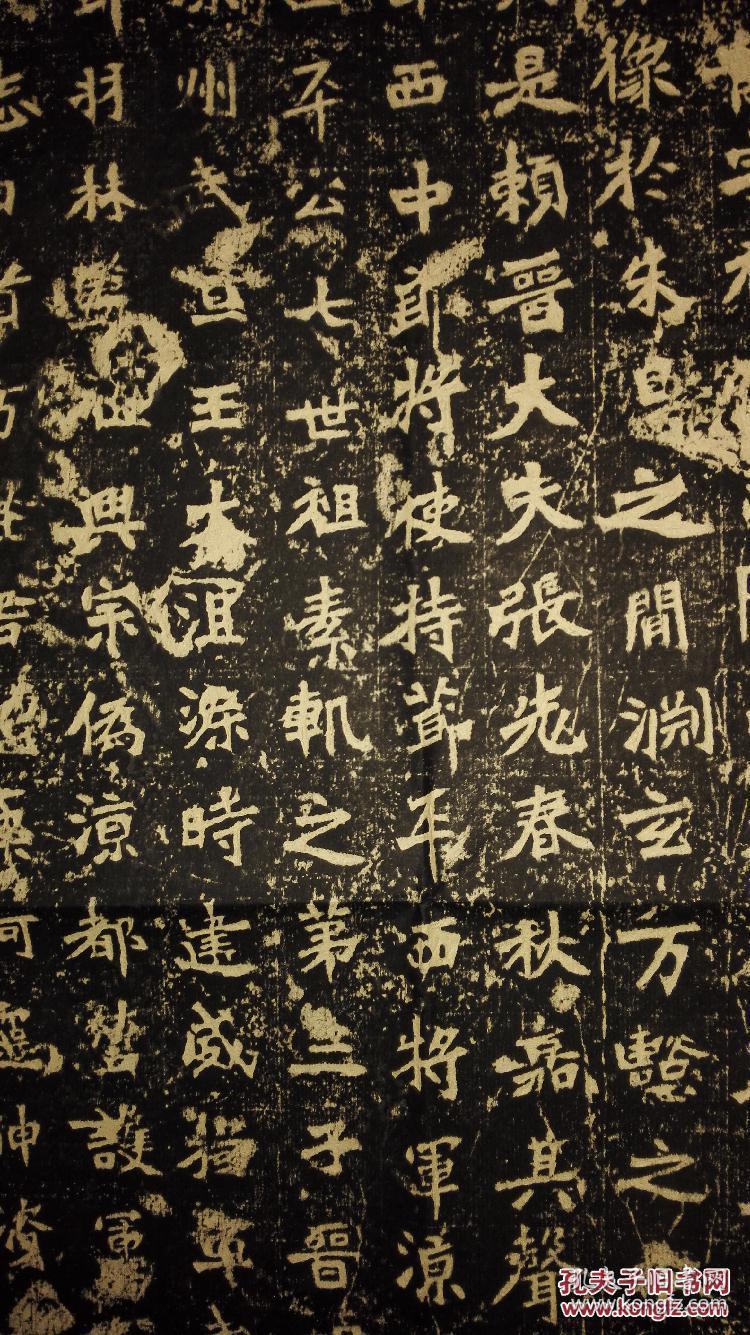 像於朱鳥之間淵玄万壑之
是賴晉大夫張老春秋嘉其聲
西中郎將使持節平西將軍涼
平公七世祖素軌之第三子晉
州武宣王大沮渠時建威將軍
羽林監祖興宗偽涼都營護軍
孔夫子旧书网
www.kongfz.com